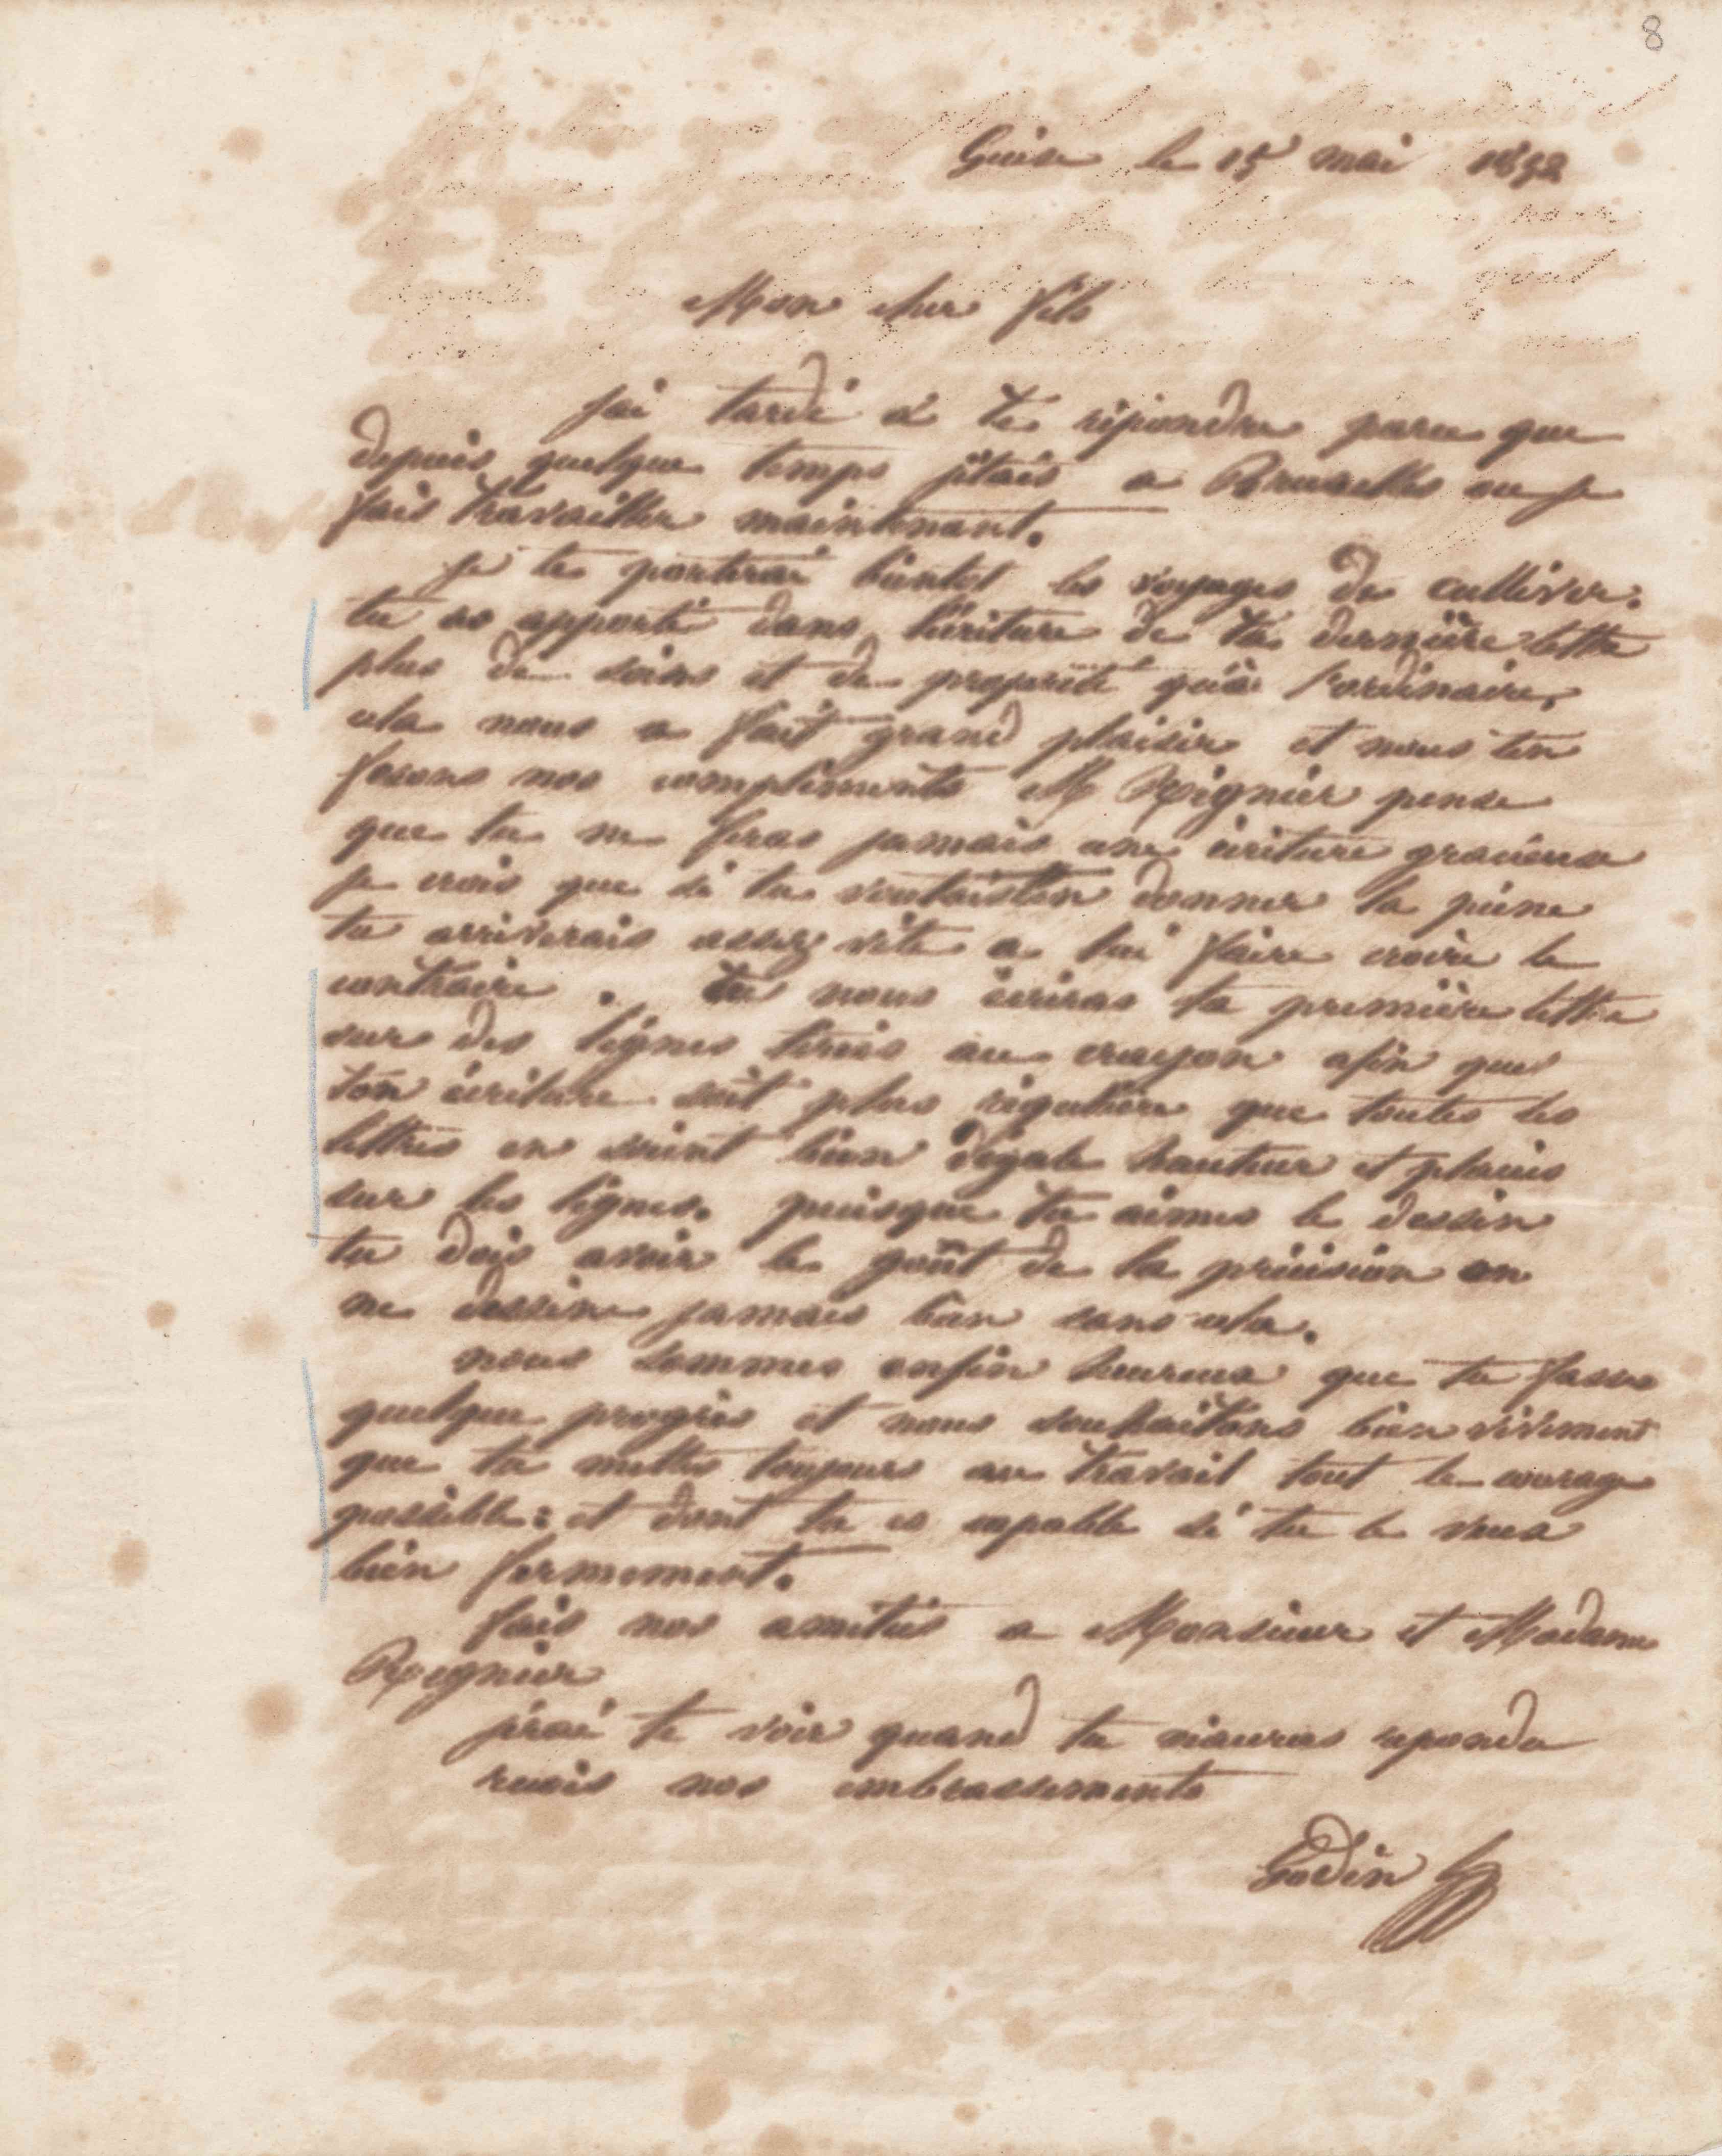 8
Guise le 15 mai 1852
Mon cher fils
j'ai tardé à te répondre parce que
depuis quelque temps jétais a Bruxelles ou je
fais travailler maintenant.
je te porterai bientot les voyages de culliver.
tu as apporté dans l'écriture de ta dernière lettre
plus de soins et de propreté qu'à l'ordinaire,
cela nous a fait grand plaisir et nous t'en
fesons nos compliments M Reignier pense
que tu ne feras jamais une écriture gracieuse
je crois que si tu voulais t'en donner la peine
tu arriverais assez vite a lui faire croire le
contraire. tu nous écriras ta première lettre
sur des lignes tirées au crayon afin que
ton écriture soit plus régulière que toutes les
lettres en soient bien dégale hauteur et placées
sur les lignes. puisque tu aimes le dessin
tu dois avoir le goût de la précision on
ne dessine jamais bien sans cela.
nous sommes enfin heureux que tu fasses
quelque progrès et nous souhaitons bien vivement
que tu mettes toujours au travail tout le courage
possible: et dont tu es capable si tu le veux
bien fermement.
fais nos amitiés a Monsieur et Madame
Reignier
j'irai te voir quand tu m'auras repondu
recois nos embrassements
Godin